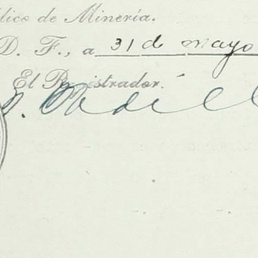 lico de Minería.
D. F., a 31 de mayo
El Registrador.
Padill